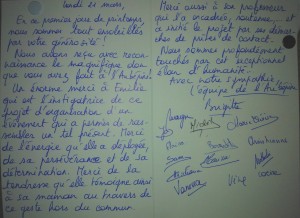 lundi 21 mars,
En ce premier jour de printemps,
nous sommes tout ensoleillés
par votre générosité.
Nous avons reçu avec recon-
naissance le magnifique don
que vous avez fait à l'Aubépine
Un énorme merci à Émilie
qui est l'instigatrice de ce
projet d'organisation d'un
événement qui a permis de ras-
sembler un tel présent. Merci
de l'énergie qu'elle a déployée,
de sa persévérance et de sa
détermination. Merci de la
tendresse qu'elle témoigne aussi
à sa maman au travers de
ce geste hors du commun.
Merci aussi à son professeur
qui l'a encadrée, soutenue et
a initié le projet par ses démar-
ches de prises de contact.
Nous sommes profondément
touchés par cet exceptionnel
élan d'humanité.
Avec notre sympathie,
l'équipe de l'Aubépine
Brigitte
Nicole
Vanessa